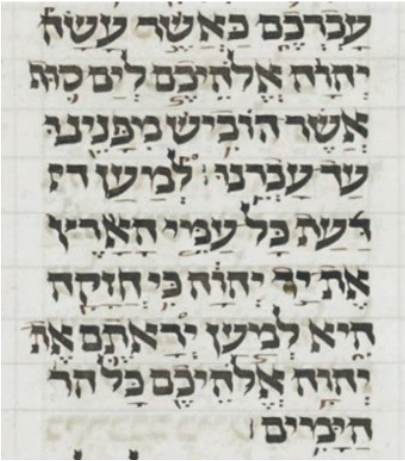 עָבְרְכֶם כַּאֲשֶׁר עָשָׂה
יְהוָה אֱלֹהֵיכֶם לְיַם סוּף
אֲשֶׁר הוֹבִישׁ מִפָּנֵינוּ
עַד עָבְרֵנוּ׃ לְמַעַן
דַּעַת כָּל עַמֵּי הָאָרֶץ
אֶת יַד יְהוָה כִּי חֲזָקָה
הִיא לְמַעַן יְרָאתֶם אֶת
יְהוָה אֱלֹהֵיכֶם כָּל
הַיָּמִים׃